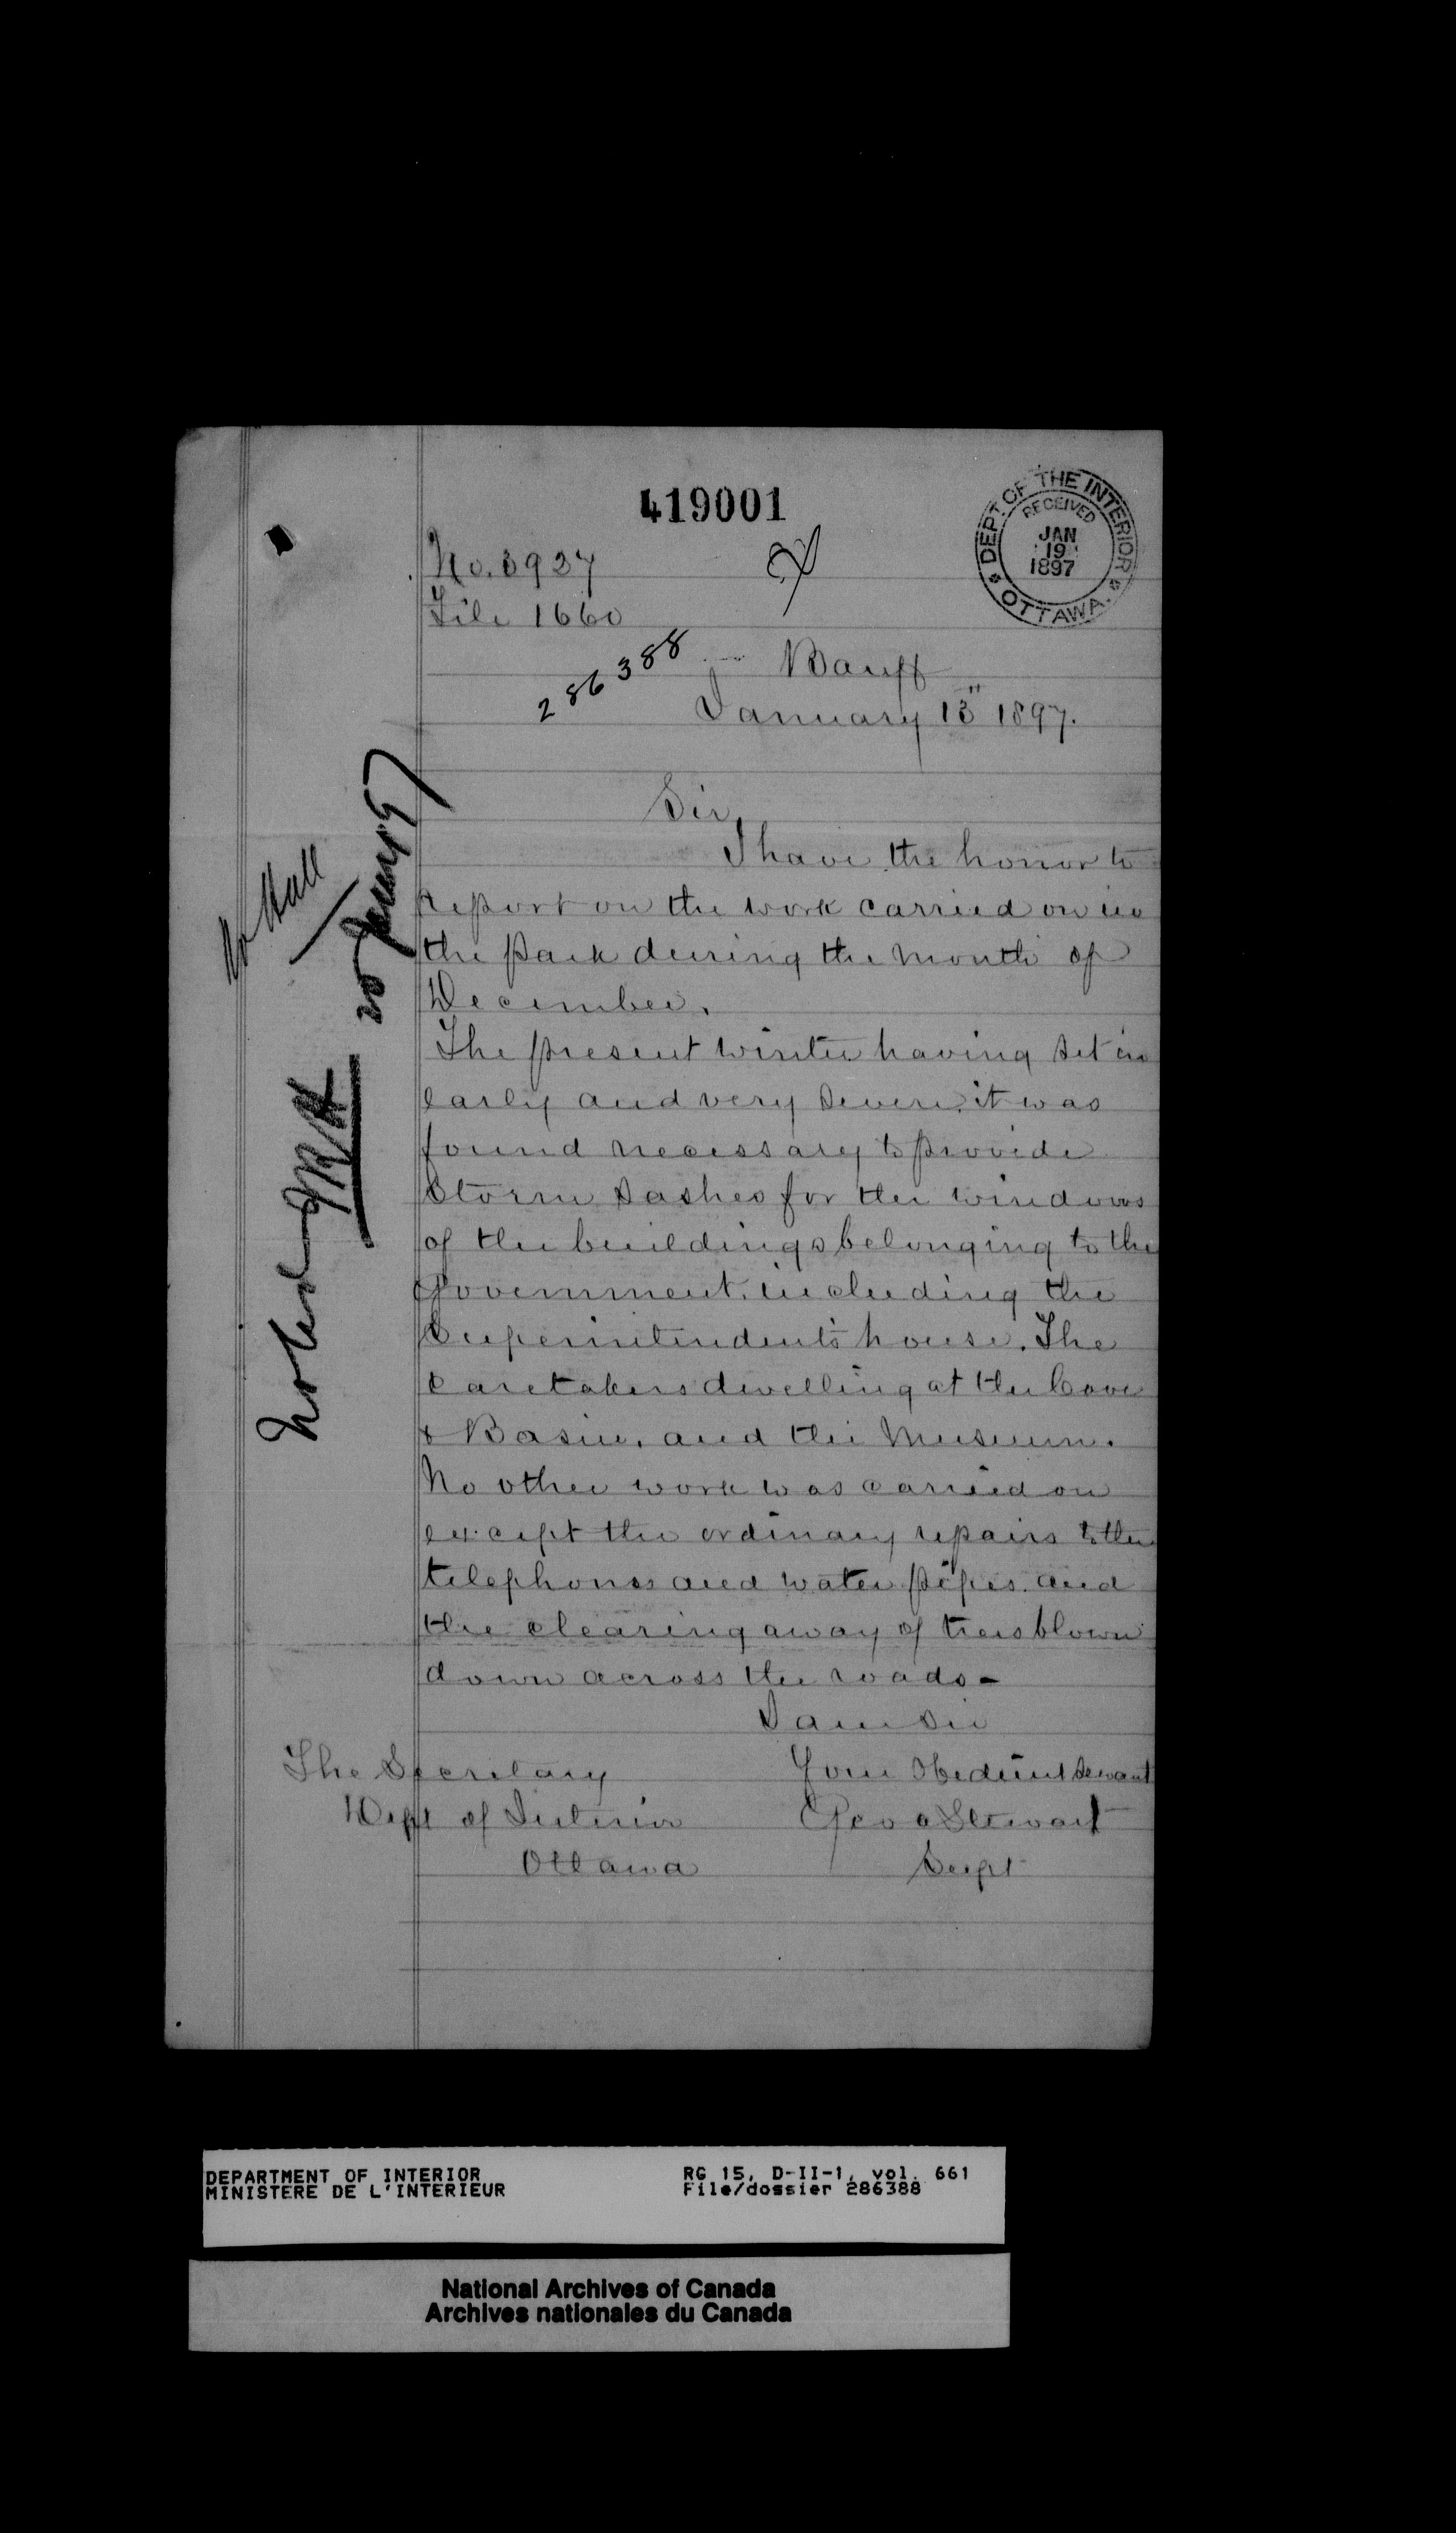 419001
DEPT. OF THE INTERIOR
RECEIVED
JAN
19
1897
OTTAWA.
No. 3927
File 1660
286388
Banff
January 13" 1897.
Sir,
I have the honor to
report on the work carried on in
the Park during the month of
December.
The present winter having set in
early and very severe, it was
found necessary to provide
Storm Sashes for the windows
of the buildings belonging to the
Government, including the
Superintendent's house. The
Caretakers dwelling at the Cave
& Basin, and the Museum.
No other work was carried on
except the ordinary repairs to the
telephones and water pipes and
the clearing away of trees blown
down across the roads -
I am Sir
Your Obedient Servant
Geo A Stewart
Supt
The Secretary
Dept of Interior
Ottawa
Mr Hall
Noted JRH 20 Jany 97
DEPARTMENT OF INTERIOR
MINISTERE DE L'INTERIEUR
RG 15, D-II-1, vol. 661
File/dossier 286388
National Archives of Canada
Archives nationales du Canada